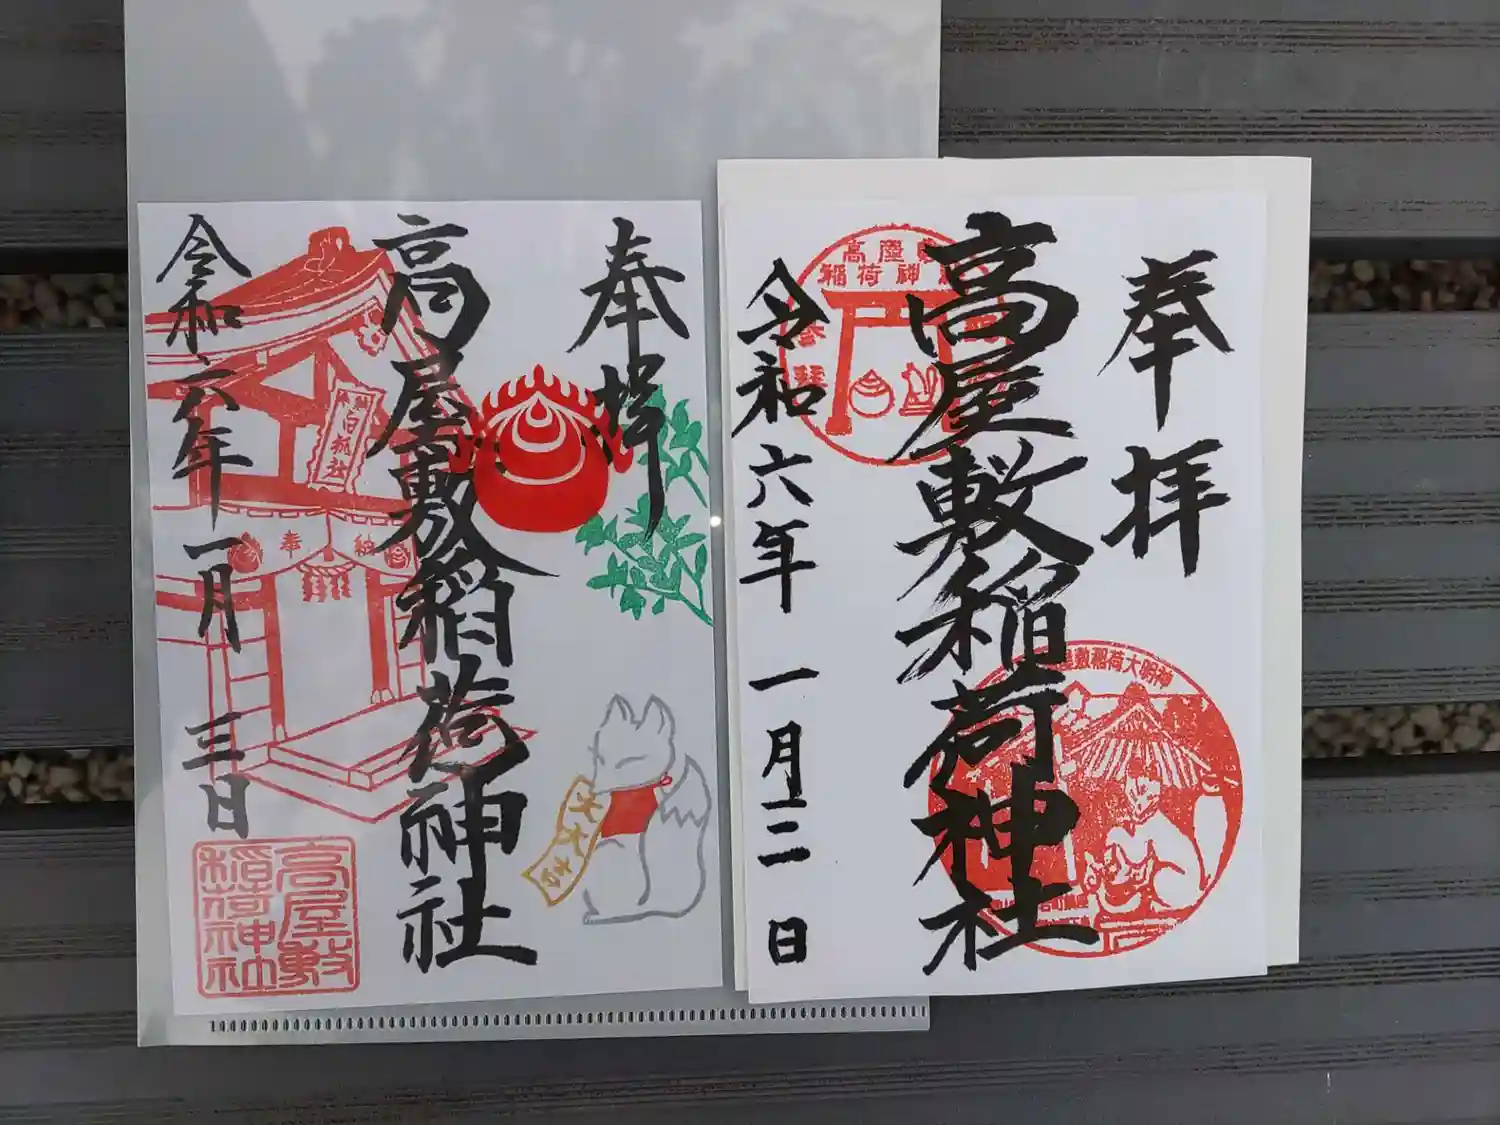 奉拝
高屋敷稲荷神社
令和六年一月三日
奉納
大大吉
高屋敷
稲荷神社
奉拝
高屋敷稲荷神社
令和六年一月二日
稲荷神
屋敷稲荷大明神